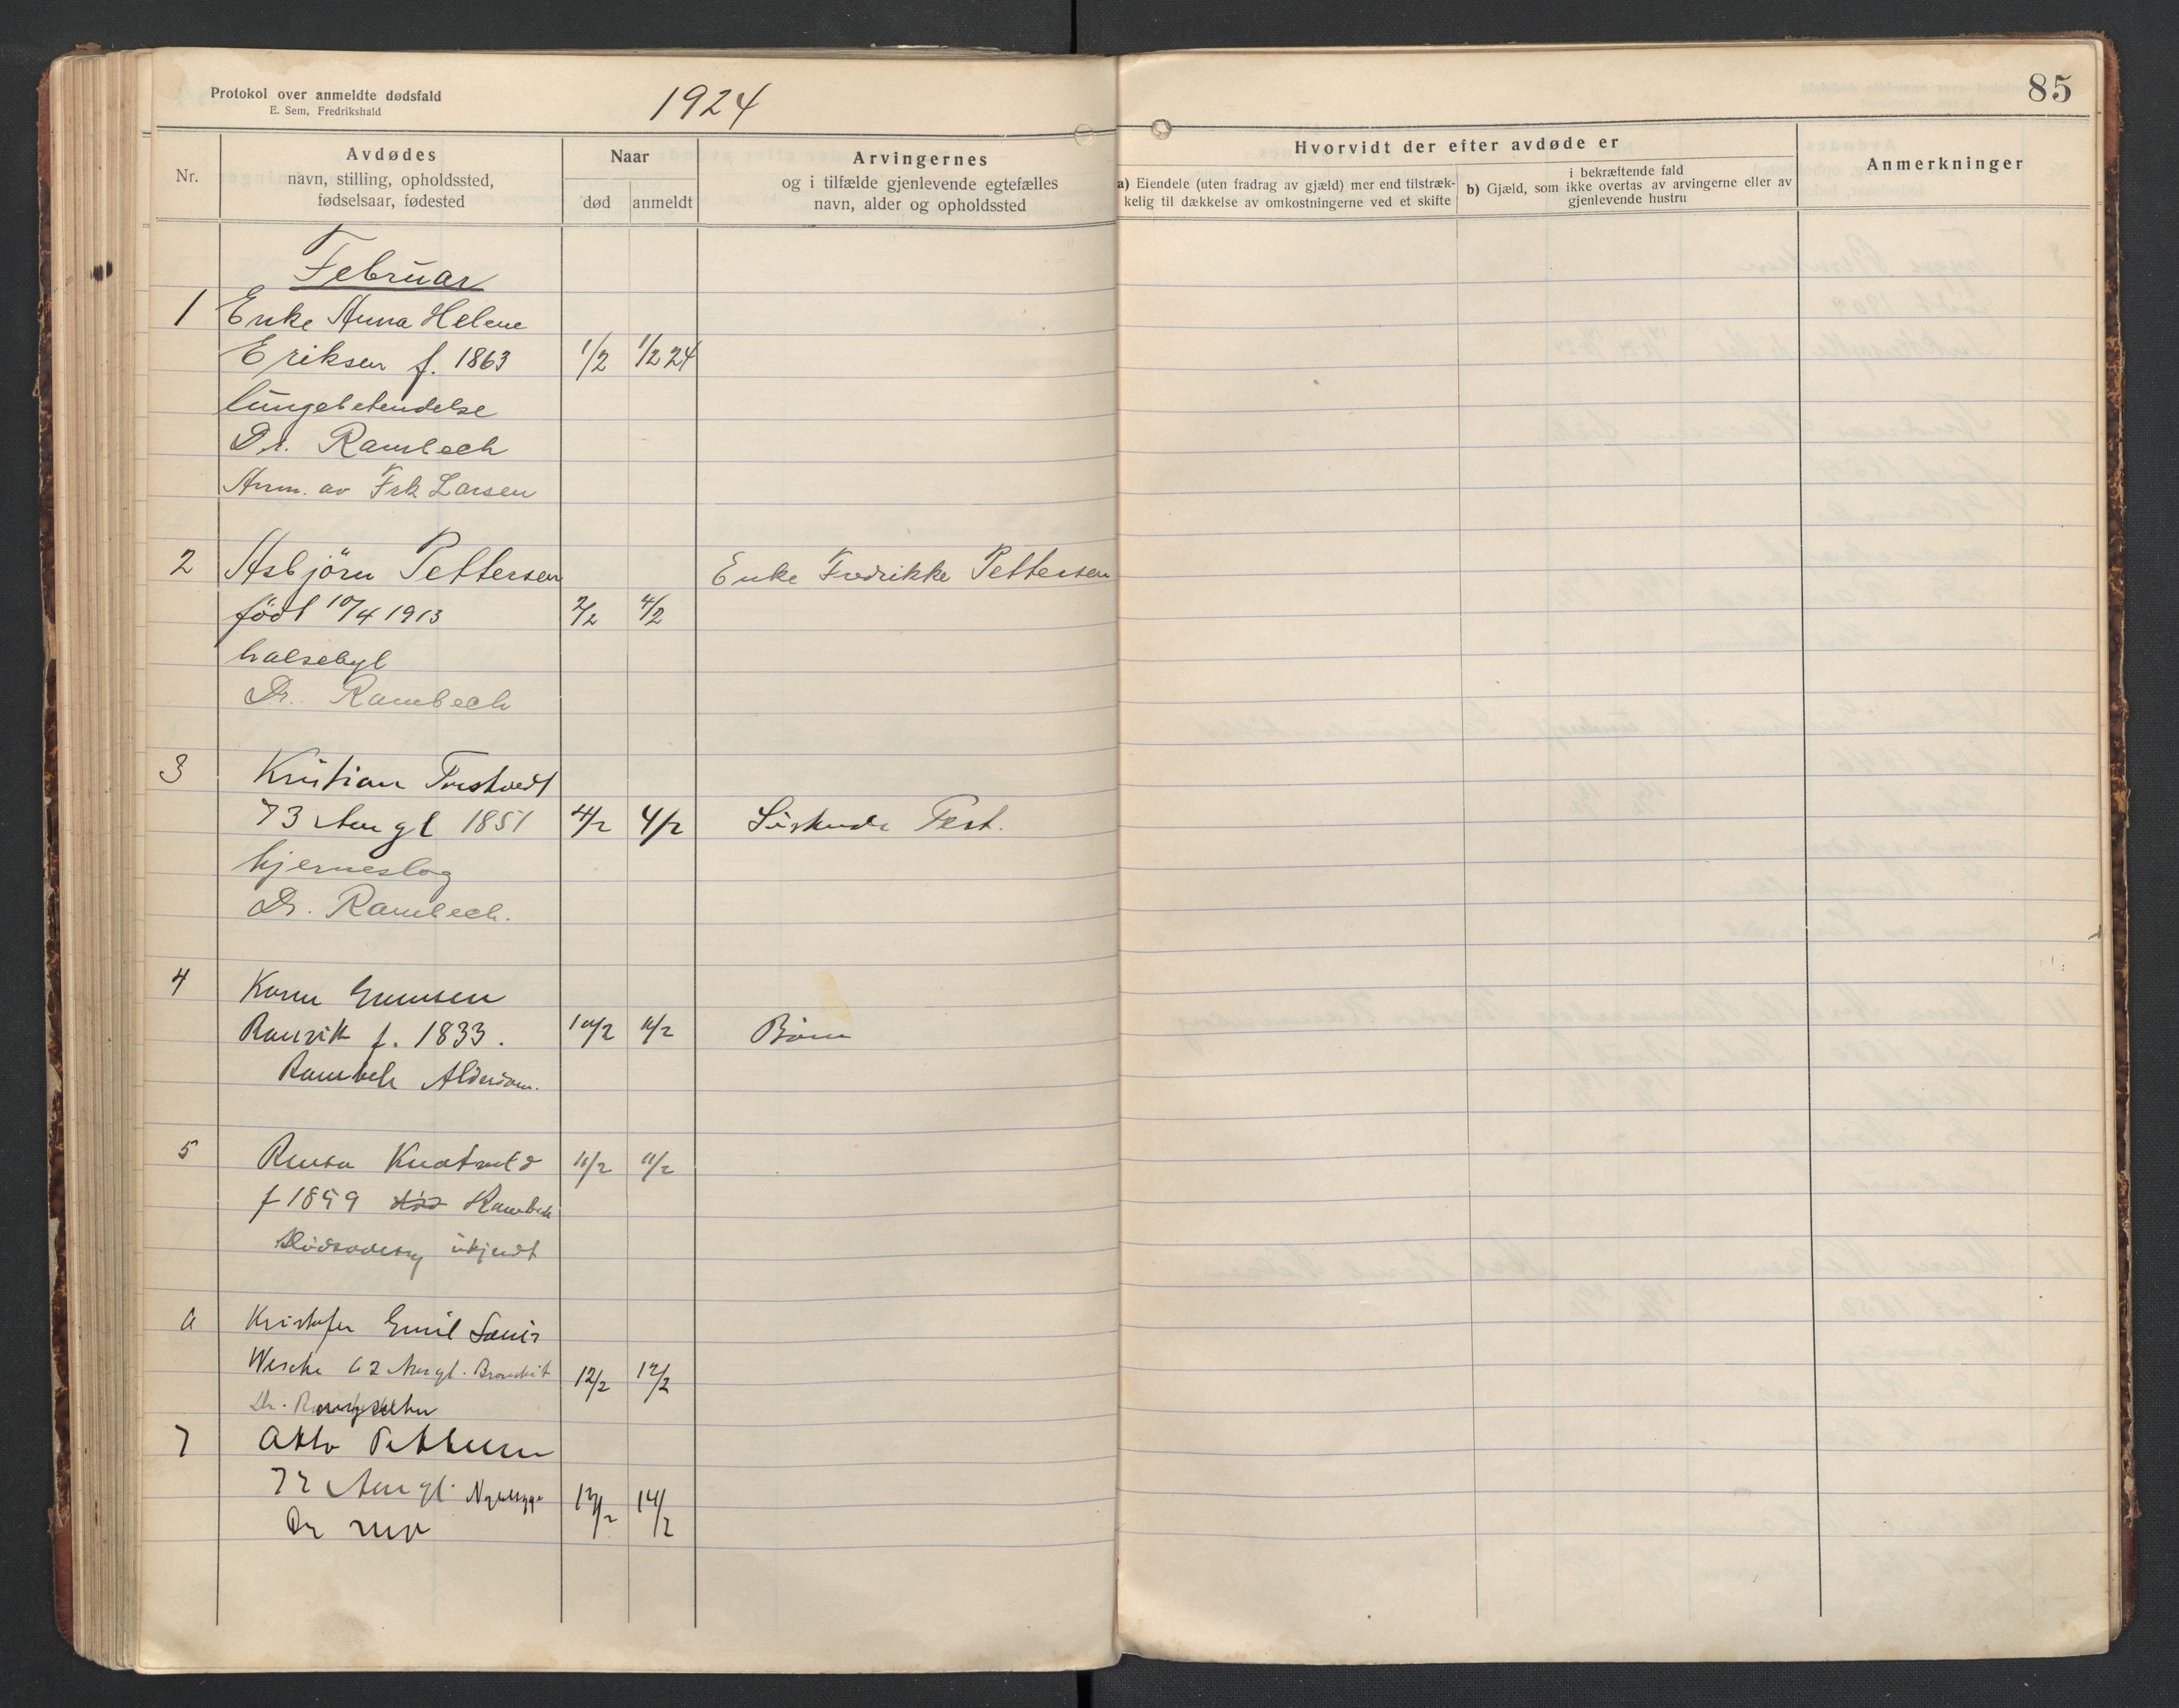 Protokol over anmeldte dødsfald
E. Sem, Fredrikshald
1924
85
Nr.
Avdødes
navn, stilling, opholdssted,
fødselsaar, fødested
Naar
død anmeldt
Arvingernes
og i tilfælde gjenlevende egtefælles
navn, alder og opholdssted
Hvorvidt der efter avdøde er
a) Eiendele (uten fradrag av gjæld) mer end tilstræk-
kelig til dækkelse av omkostningerne ved et skifte
i bekræftende fald
b) Gjæld, som ikke overtas av arvingerne eller av
gjenlevende hustru
Anmerkninger
Februar
1 Enke Anna Helene
Eriksen f. 1863 1/2 1/2 24
lungebetendelse
Dr. Rambech
Anm. av Frk Larsen
2 Asbjörn Pettersen Enke Fredrikke Pettersen
født 10/4 1913 2/2 4/2
halsebyl
Dr. Rambech
3 Kristian
73 Aar gl 1851 4/2 4/2 Söskende Test.
hjerneslag
Dr. Rambech.
4 Karen
f. 1833. 10/2 11/2 Börn
Rambech Alderdom.
5 11/2 11/2
f 1859 Rambech
Dödsaarsag ukjendt
6 Kristofer Emil
62 Aar gl. 12/2 12/2
Dr.
7 Otto Pettersen
72 Aar gl. 13/2 14/2
Dr